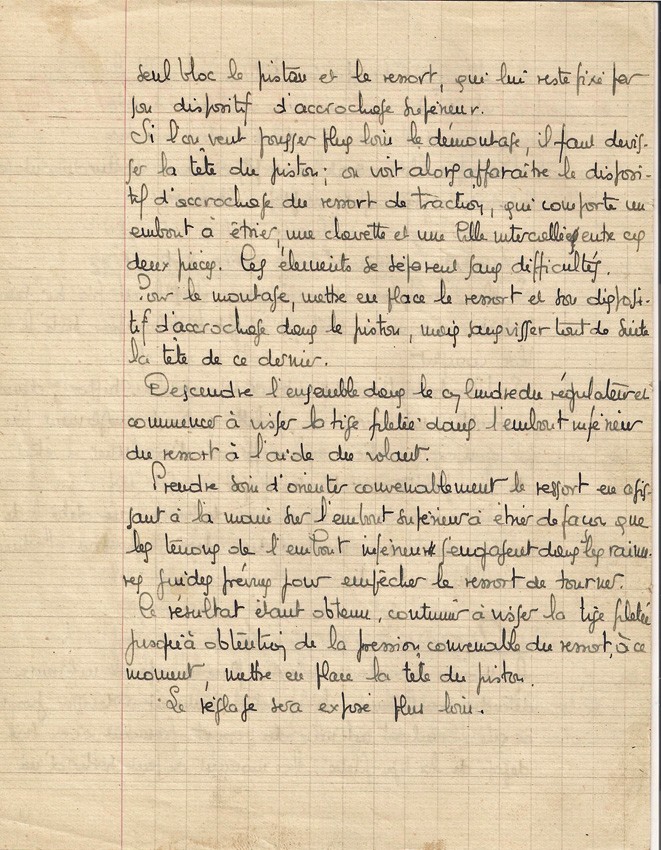 seul bloc le piston et le ressort, qui lui reste fixé par
son dispositif d'accrochage supérieur.
Si l'on veut pousser plus loin le démontage, il faut dévis-
ser la tête du piston; on voit alors apparaître le disposi-
tif d'accrochage du ressort de traction, qui comporte un
embout à étrier, une clavette et une bille intercallée entre ces
deux pièces. Ces éléments se séparent sans difficultés.
Pour le montage, mettre en place le ressort et son disposi-
tif d'accrochage dans le piston, mais sans visser tout de suite
la tête de ce dernier.
Descendre l'ensemble dans le cylindre du régulateur et
commencer à visser la tige filetée dans l'embout inférieur
du ressort à l'aide du volant.
Prendre soin d'orienter convenablement le ressort en agis-
sant à la main sur l'embout supérieur à étrier de façon que
les tenons de l'embout inférieur s'engagent dans les rainu-
res guides prévues pour empêcher le ressort de tourner.
Ce résultat étant obtenu, continuer à visser la tige filetée
jusqu'à obtention de la pression convenable du ressort, à ce
moment, mettre en place la tête du piston.
Le réglage sera exposé plus loin.